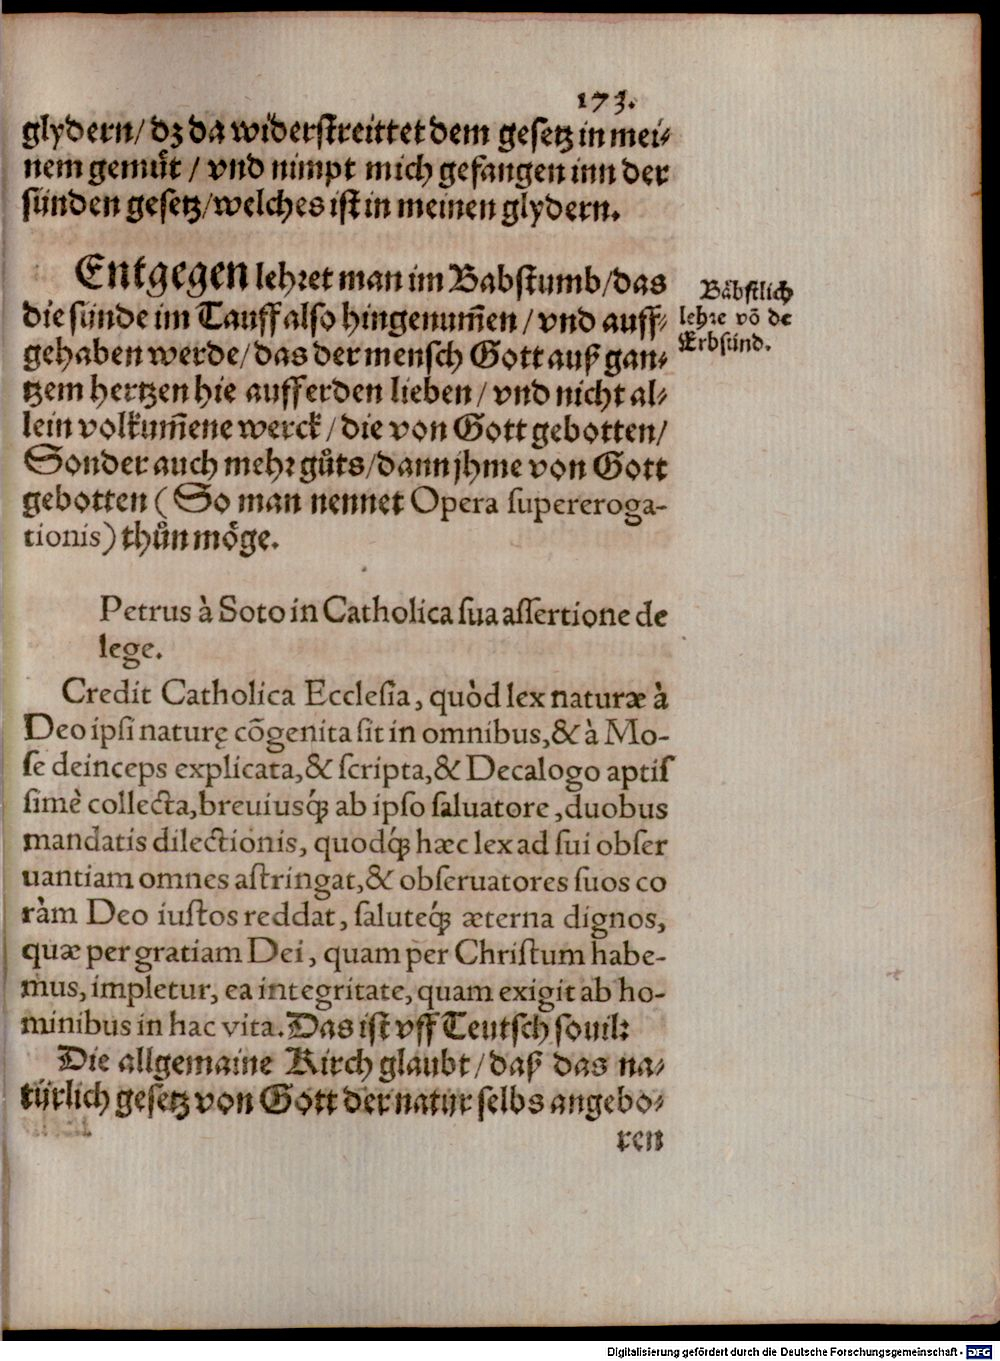 173.
glydern/ dz da widerstreittet dem gesetz in mei⸗
nem gemuͤt / vnd nimpt mich gefangen inn der
sünden gesetz/welches ist in meinen glydern.
Entgegen lehret man im Babstumb/das
die sünde im Tauff also hingenum̃en / vnd auff⸗
gehaben werde/das der mensch Gott auß gan⸗
tzem hertzen hie auff erden lieben / vnd nicht al⸗
lein volkum̃ene werck/die von Gott gebotten/
Sonder auch mehr guͦts/dann jhme von Gott
gebotten (So man nennet Opera ſupereroga-
tionis) thuͦn moͤge.
Baͤbstlich
lehre võ de
Erbsünd.
Petrus à Soto in Catholica ſua aſſertione de
lege.
Credit Catholica Eccleſia, quòd lex naturæ à
Deo ipſi naturę cõgenita ſit in omnibus,& à Mo-
ſe deinceps explicata,& ſcripta,& Decalogo aptiſ
ſimè collecta,breuiusq́; ab ipſo ſaluatore,duobus
mandatis dilectionis, quodq́; hæc lex ad ſui obſer
uantiam omnes aſtringat,& obſeruatores ſuos co
ràm Deo iuſtos reddat, ſaluteq́; æterna dignos,
quæ per gratiam Dei, quam per Chriſtum habe-
mus, impletur, ea integritate, quam exigit ab ho-
minibus in hac vita. Das ist vff Teutsch souil:
Die allgemaine Kirch glaubt/daß das na⸗
türlich gesetz von Gott der natur selbs angebo⸗
ren
Digitalisierung gefördert durch die Deutsche Forschungsgemeinschaft - DFG